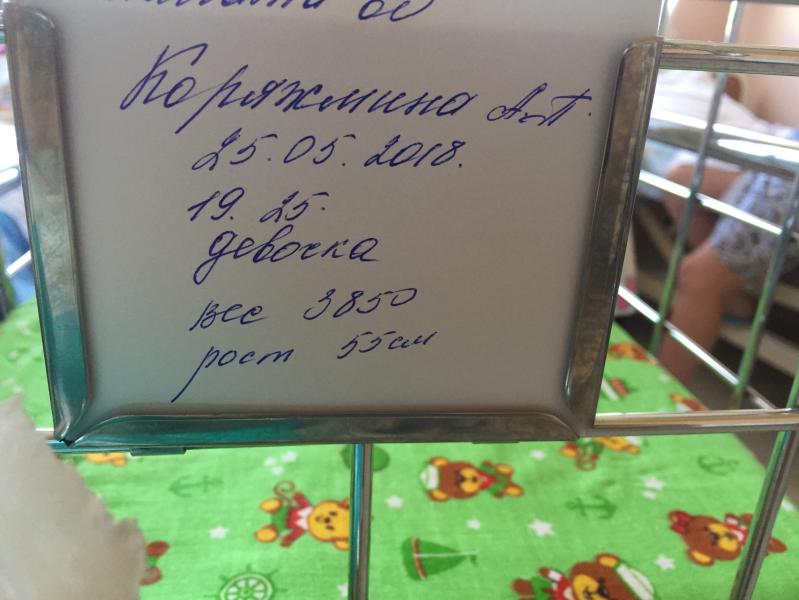 60
Коряжмина А.П.
25.05.2018.
19.25.
девочка
вес 3850
рост 55см